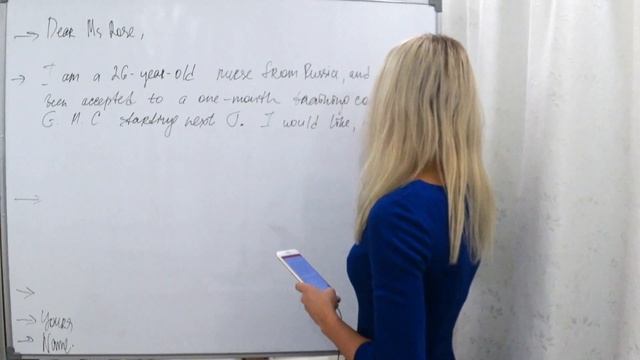 Dear Ms Rose,
I am a 26-year-old nurse from Russia, and
been accepted to a one-month training co
G. M. C starting next J. I would like,
Yours
Name.